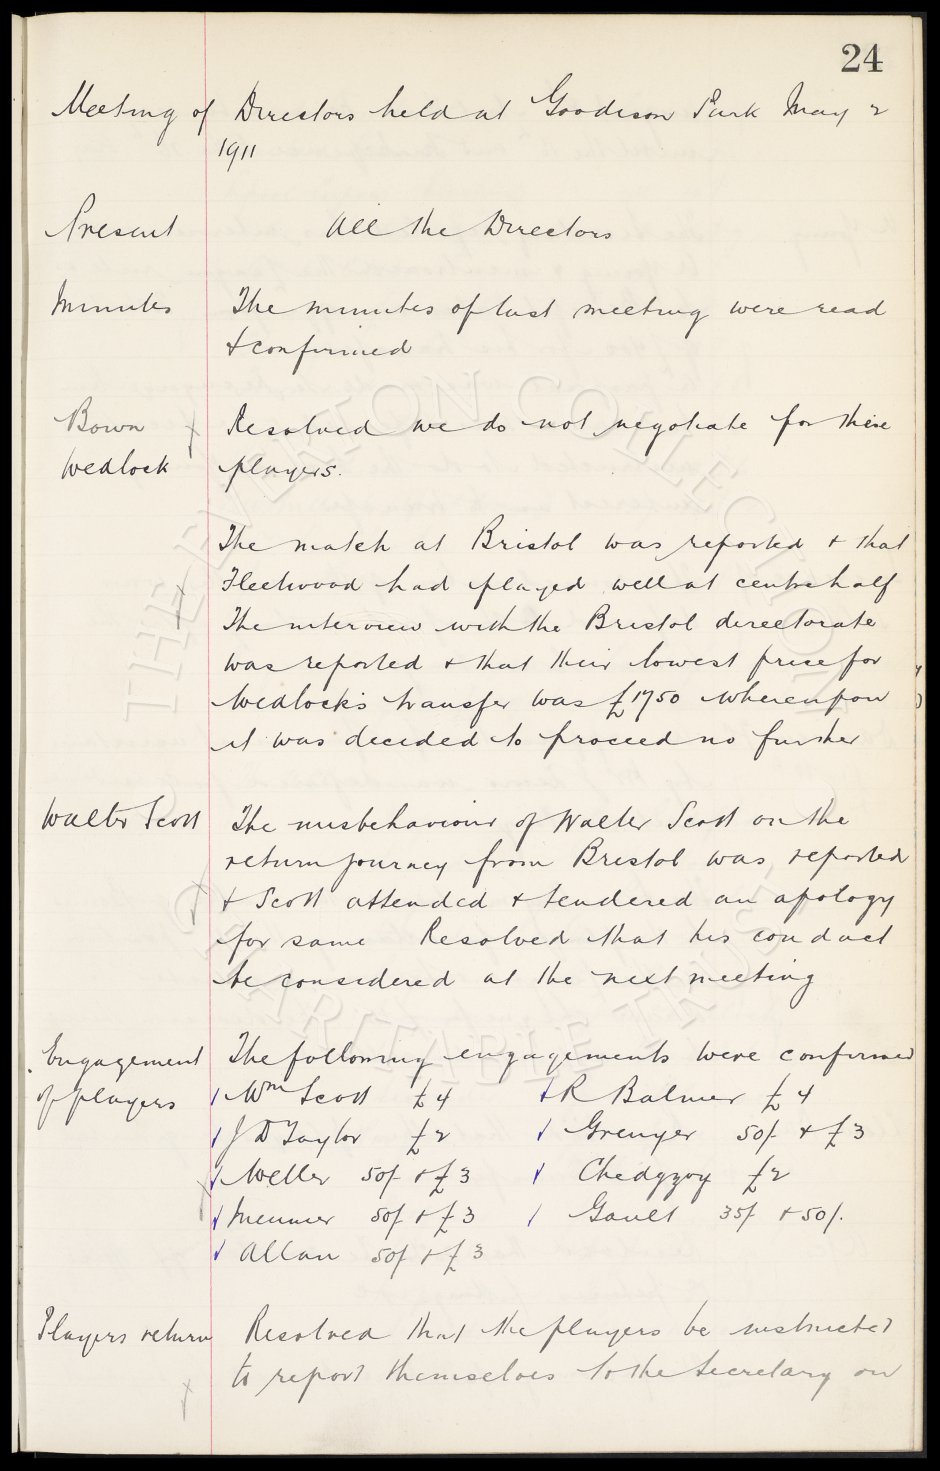 24
Meeting of Directors held at Goodison Park May 2
1911
Present All the Directors
Minutes The minutes of last meeting were read
& confirmed
Bown Resolved we do not negotiate for these
Wedlock players.
The match at Bristol was reported & that
Fleetwood had played well at centre half
The interview with the Bristol directorate
was reported & that their lowest price for
Wedlock's transfer was £1750 whereupon
it was decided to proceed no further
Walter Scott The misbehaviour of Walter Scott on the
return journey from Bristol was reported
& Scott attended & tendered an apology
for same Resolved that his conduct
be considered at the next meeting
Engagement The following engagements were confirmed
of players Wm Scott £4 R Balmer £4
J D Taylor £2 Grenyer 50/- & £3
Weller 50/- & £3 Chedgzoy £2
Meunier 50/- & £3 Gault 35/- & 50/-
Allan 50/- & £3
Players return Resolved that the players be instructed
to report themselves to the Secretary on
THE EVERTON COLLECTION CHARITABLE TRUST